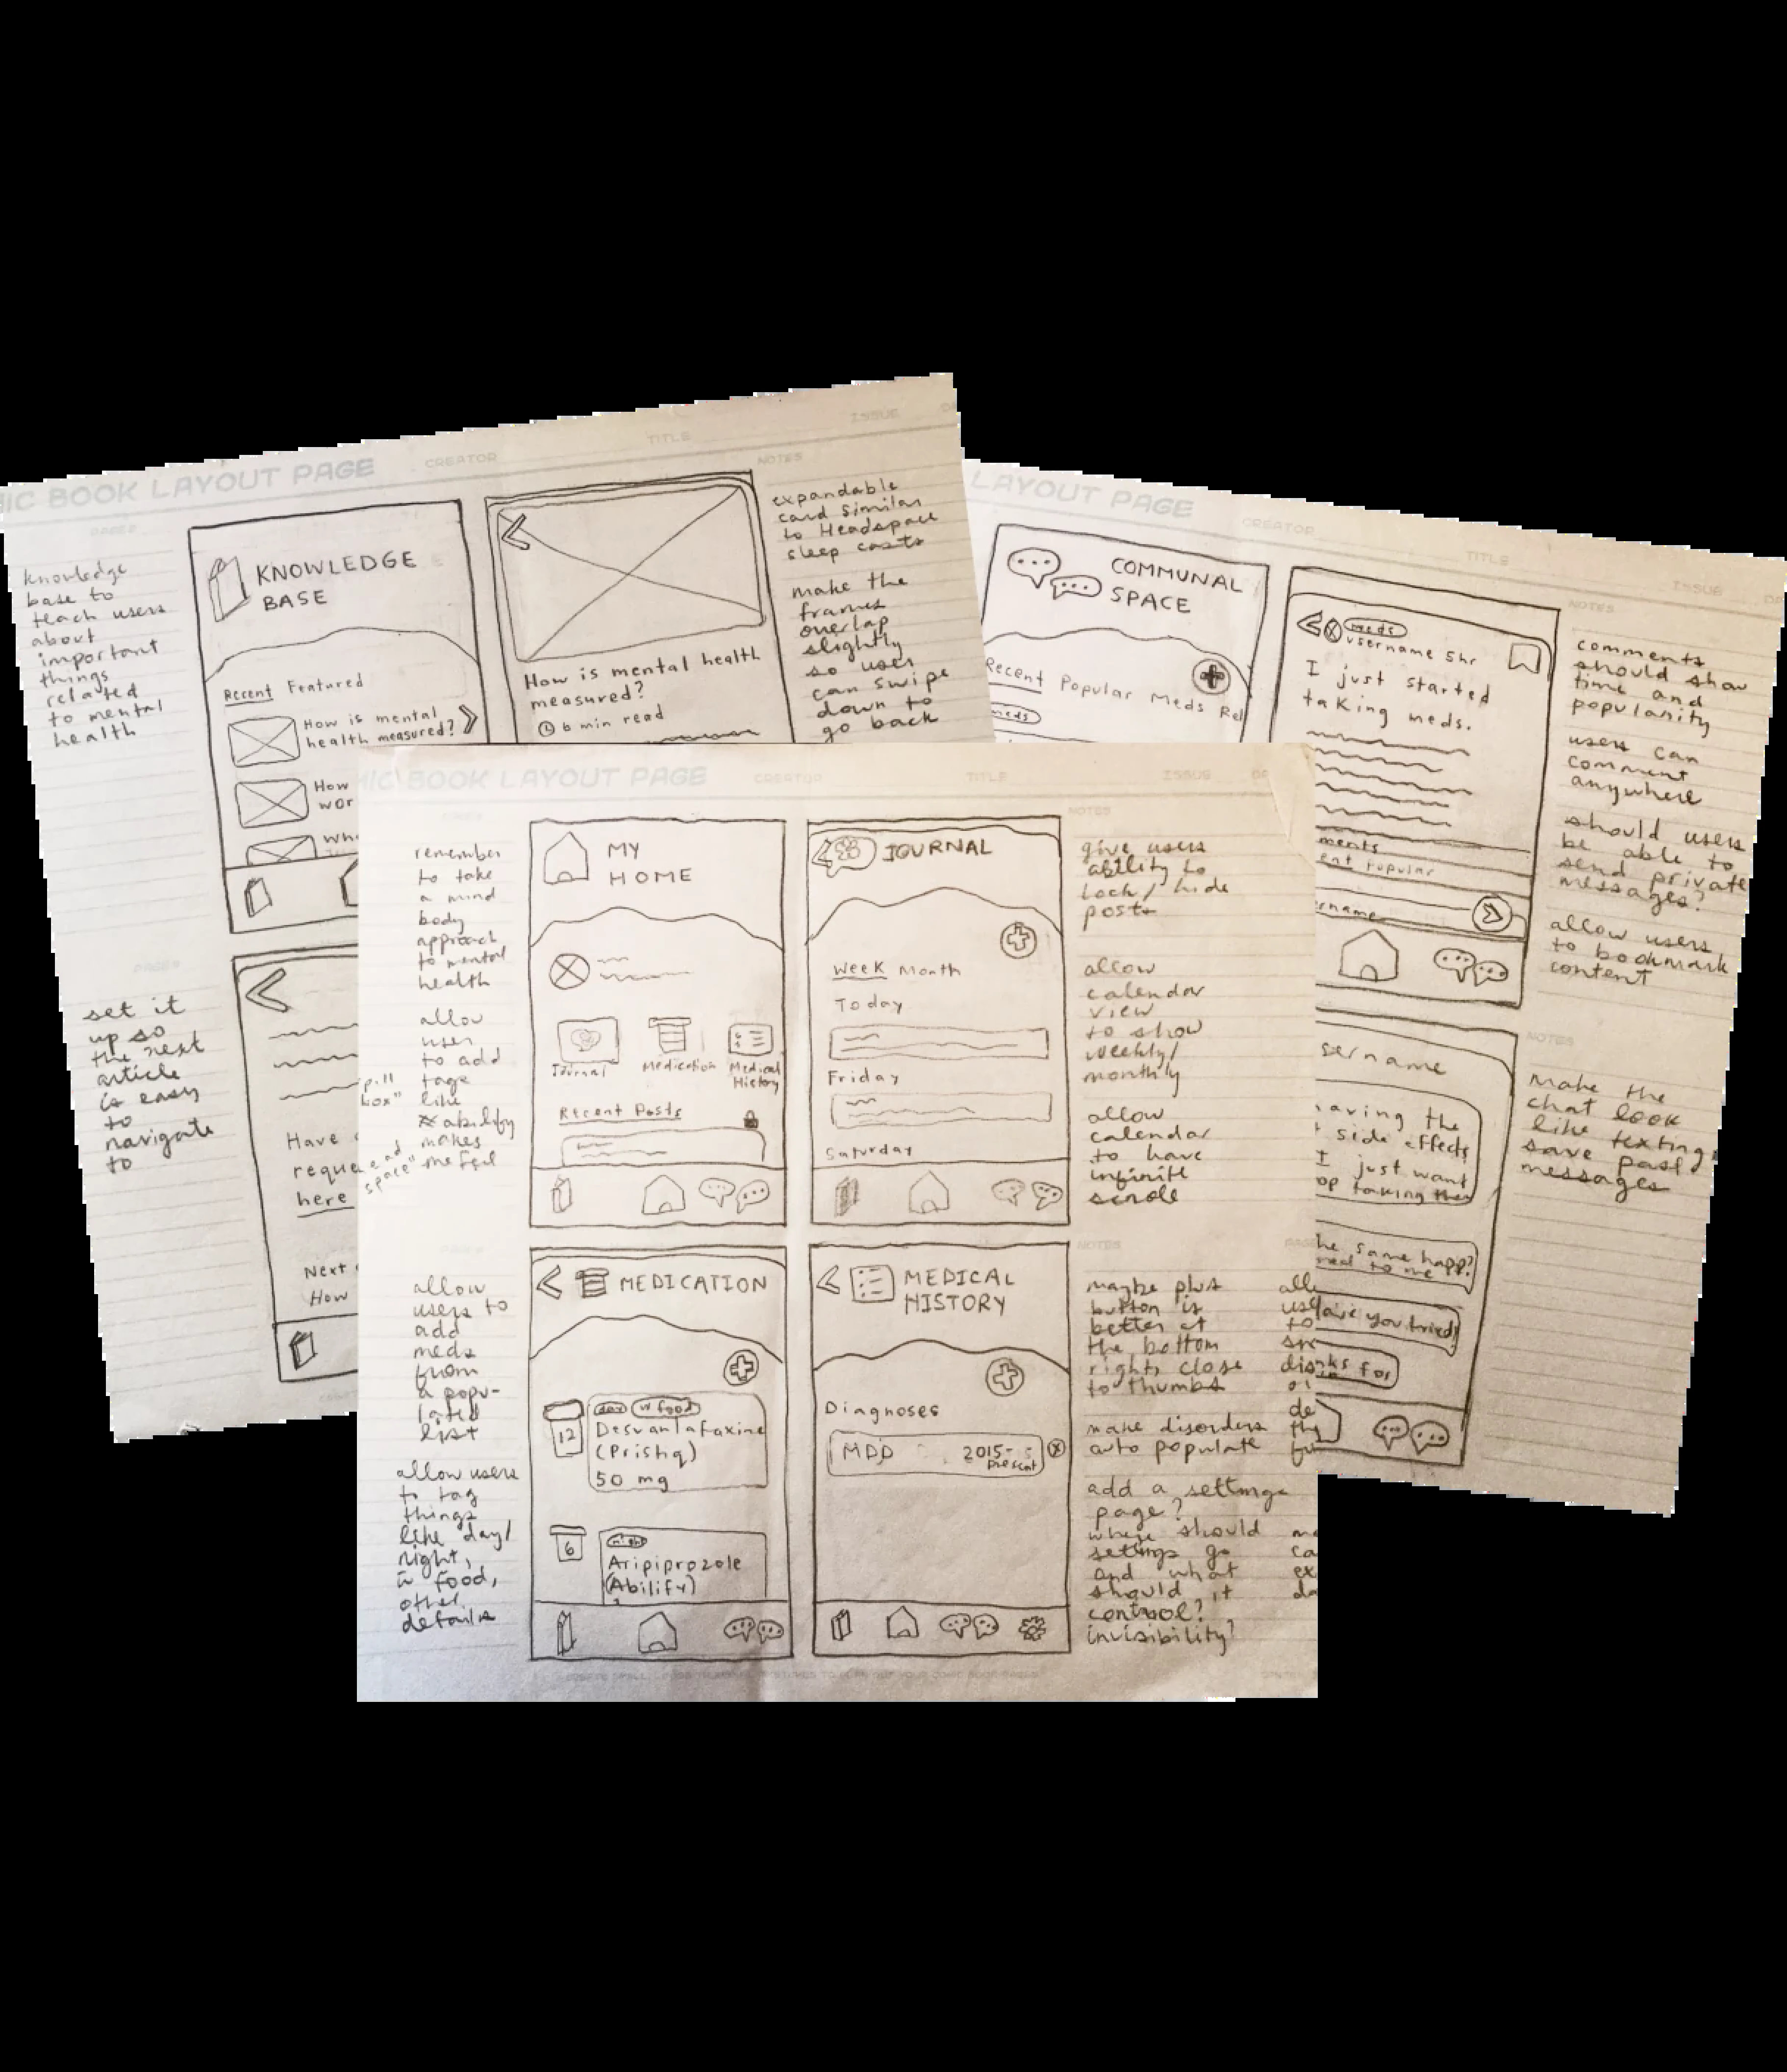 BOOK LAYOUT PAGE
CREATOR
TITLE
ISSUE
PAGES
NOTES
knowledge
base to
teach users
about
important
things
related
to mental
health
KNOWLEDGE
BASE
Recent Featured
How is mental
health measured?
How
wor
Wh
How is mental health
measured?
6 min read
expandable
card similar
to Headspace
sleep casts
make the
frames
overlap
slightly
so user
can swipe
down to
go back
PAGES
set it
up so
the next
article
is easy
to
navigate
to
Have
reque
here
Next
How
LAYOUT PAGE
CREATOR
TITLE
ISSUE
NOTES
COMMUNAL
SPACE
Recent Popular Meds Rel
meds
meds
username 5hr
I just started
taking meds.
ments
ent popular
ername
comments
should show
time and
popularity
users can
comment
anywhere
should users
be able to
send private
messages?
allow users
to bookmark
content
sername
aving the
side effects
I just want
op taking them
he same happ
ened to me
Have you tried
nks for
NOTES
make the
chat look
like texting,
save past
messages
BOOK LAYOUT PAGE
CREATOR
TITLE
ISSUE
NOTES
remember
to take
a mind
body
approach
to mental
health
allow
user
to add
tags
like
abilify
makes
me feel
MY
HOME
Journal
Medication
Medical
History
Recent Posts
JOURNAL
Week Month
Today
Friday
Saturday
give users
ability to
lock/hide
posts
allow
calendar
view
to show
weekly/
monthly
allow
calendar
to have
infinite
scroll
allow
users to
add
meds
from
a popu-
lated
list
allow users
to tag
things
like day/
night,
w food,
other
details
MEDICATION
day w food
12
Desvanlafaxine
(Pristiq)
50 mg
night
6
Aripiprozole
(Abilify)
MEDICAL
HISTORY
Diagnoses
MDD 2015-
present
NOTES
maybe plus
button is
better at
the bottom
right, close
to thumbs
make disorders
auto populate
add a settings
page?
where should
settings go
and what
should it
control?
invisibility?